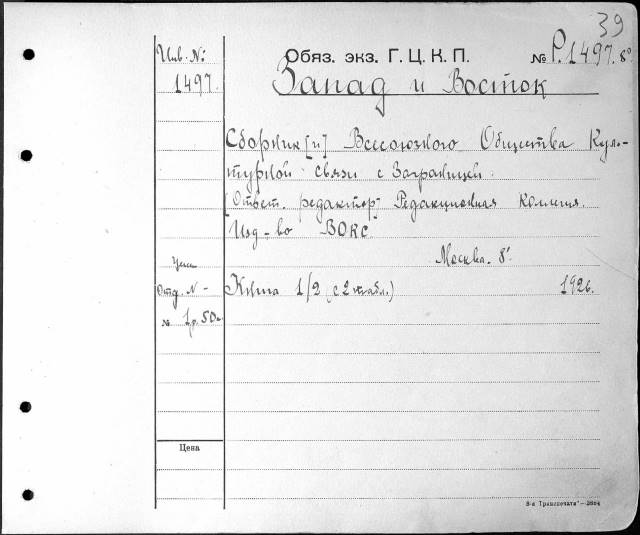 39
Инв. №:
1497.
Обяз. экз. Г. Ц. К. П. № Р. 1497. 8°
Запад и Восток
Сборник[и] Всесоюзного Общества Куль-
турной связи с Заграницей.
[Ответ. редактор] Редакционная Комиссия.
Изд-во ВОКС
Москва. 8°.
Цена
Отд. N-
№ 1р. 50к
Книга 1/2 (с 2 табл.) 1926.
Цена
8-я Транспечати"—2864